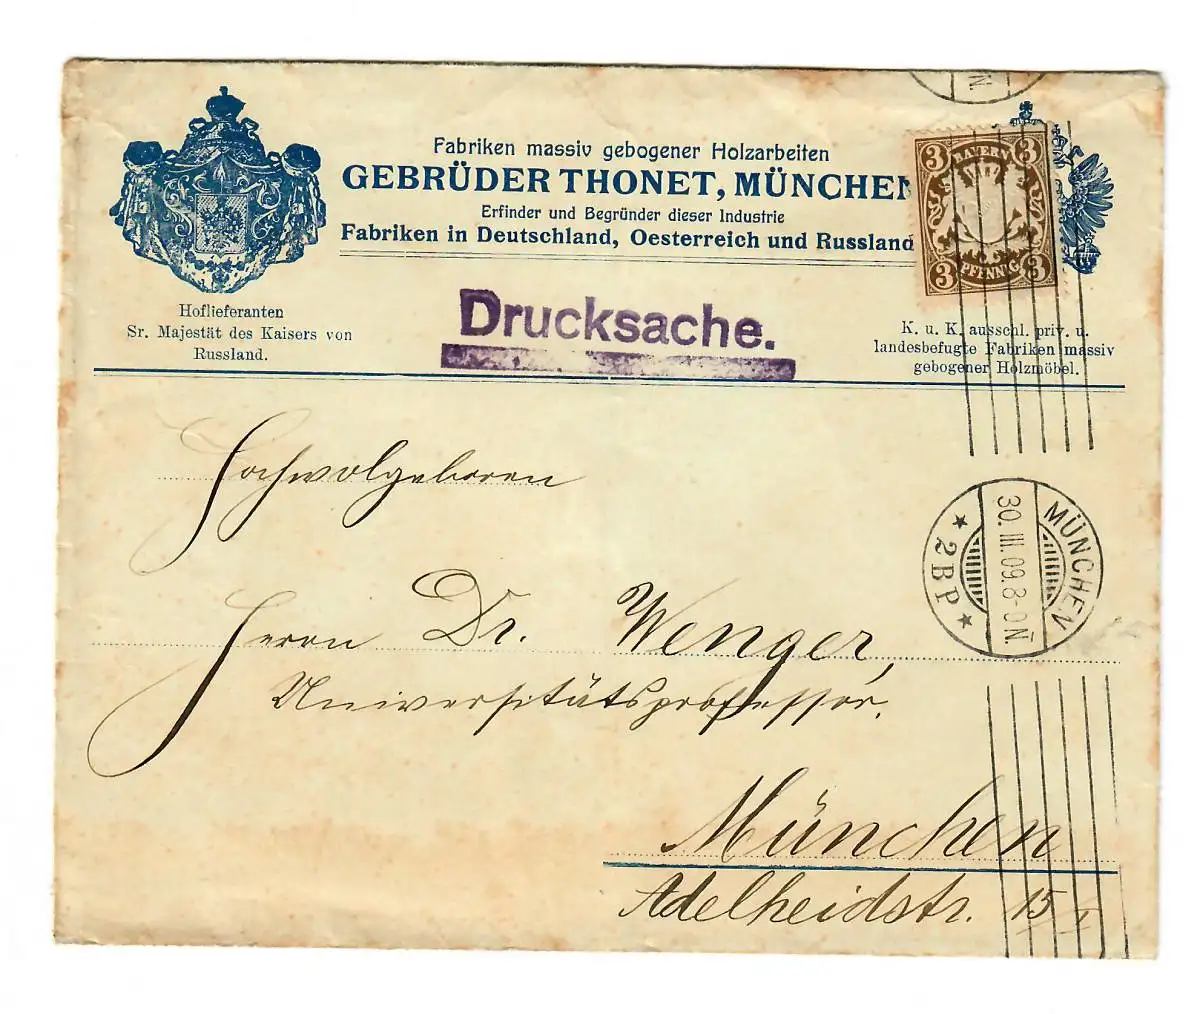 Fabriken massiv gebogener Holzarbeiten
GEBRÜDER THONET, MÜNCHEN
Erfinder und Begründer dieser Industrie
Fabriken in Deutschland, Oesterreich und Russland
3 BAYERN 3
3 PFENNIG 3
Hoflieferanten
Sr. Majestät des Kaisers von
Russland.
Drucksache.
K. u. K. ausschl. priv. u.
landesbefugte Fabriken massiv
gebogener Holzmöbel.
Hochwolgeboren
MÜNCHEN
30.III.09.8-9N.
* 2BP *
Herrn Dr. Wenger,
Universitätsprofessor.
München
Adelheidstr. 15 I